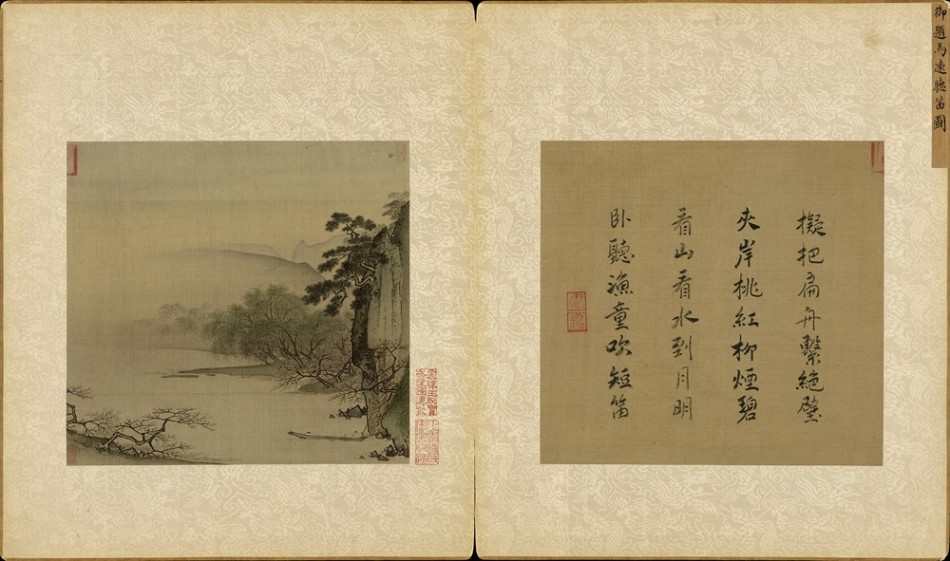 御題馬遠聽笛圖
擬把扁舟繫絕壁
夾岸桃紅柳煙碧
看山看水到月明
臥聽漁童吹短笛